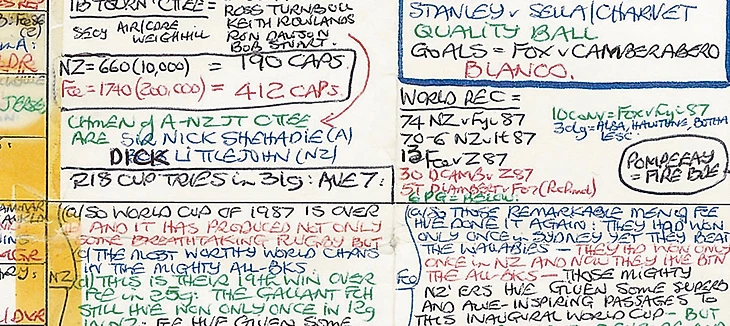 IB TOURN CTEE =
SECY AIR/CORE
WEIGHILL
ROSS TURNBULL
KEITH ROWLANDS
RON DAWSON
BOB STUART.
NZ = 660 (10,000) = 190 CAPS.
Fce = 1740 (200,000) = 412 CAPS.
CHMEN of A-NZ JT CTEE
ARE SIR NICK SHEHADIE (A)
DICK LITTLEJOHN (NZ)
218 CUP TRIES in 31g: AVE 7:
NZ
(a) SO WORLD CUP OF 1987 IS OVER
AND IT HAS PRODUCED NOT ONLY
SOME BREATHTAKING RUGBY BUT
THE MOST WORTHY WORLD CHAMS
IN THE MIGHTY ALL-BKS.
(d) THIS IS THEIR 19th WIN OVER
FCE in 25g: THE GALLANT FCH
STILL HVE WON ONLY ONCE IN 12g
IN NZ: FCE HVE GIVEN SOME
STANLEY v SELLA/CHARVET
QUALITY BALL
GOALS = FOX v CAMBERABERO
BLANCO.
WORLD REC =
74 NZ v Fyi 87
70-6 NZ v It 87
13 Fce v Z 87
30 D CAMB v Z 87
5T
6 PG = BELOW.
10 conv = Fox v Fyi 87
3dg =
POMPEEAY
= FIRE BDE
Fce
(a) SO THOSE REMARKABLE MEN of FCE
HVE DONE IT AGAIN: THEY HAD WON
ONLY ONCE in SYDNEY YET THEY BEAT
THE WALLABIES THEY HAD WON ONLY
ONCE in NZ AND NOW THEY HVE BTN
THE ALL-BKS — THOSE MIGHTY
NZ'ERS HVE GIVEN SOME SUPERB
AND AWE-INSPIRING PASSAGES TO
THIS INAUGURAL WORLD CUP - BUT